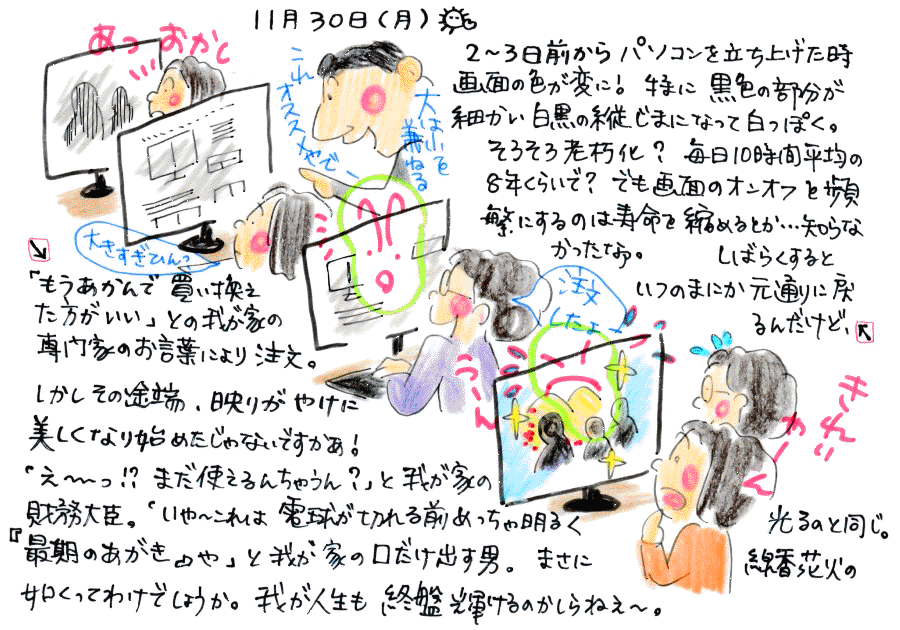 11月30日(月)
2〜3日前から パソコンを立ち上げた時
画面の色が変に! 特に 黒色の部分が
細かい 白黒の縦じまになって白っぽく。
そろそろ老朽化? 毎日10時間平均の
8年くらいで? でも画面のオンオフを頻
繁にするのは寿命を縮めるとか…知らな
かったなぁ。 しばらくすると
いつのまにか 元通りに戻
るんだけど、
あっ おかしい
これオススメやでー
大は小を兼ねる
大きすぎひん?
「もうあかんで 買い換え
た方がいい」との我が家の
専門家のお言葉により 注文。
注文したよー
うーん
しかしその途端、映りが やけに
美しくなり始めたじゃないですかぁ!
「え〜っ!? まだ使えるんちゃうん?」と 我が家の
財務大臣。「いや〜これは 電球が切れる前めっちゃ明るく
光るのと同じ。
『最期のあがき』や」と 我が家の口だけ出す男。 まさに
線香花火の
如くってわけでしょうか。我が人生も 終盤 輝けるのかしらねえ〜。
きれいやーん